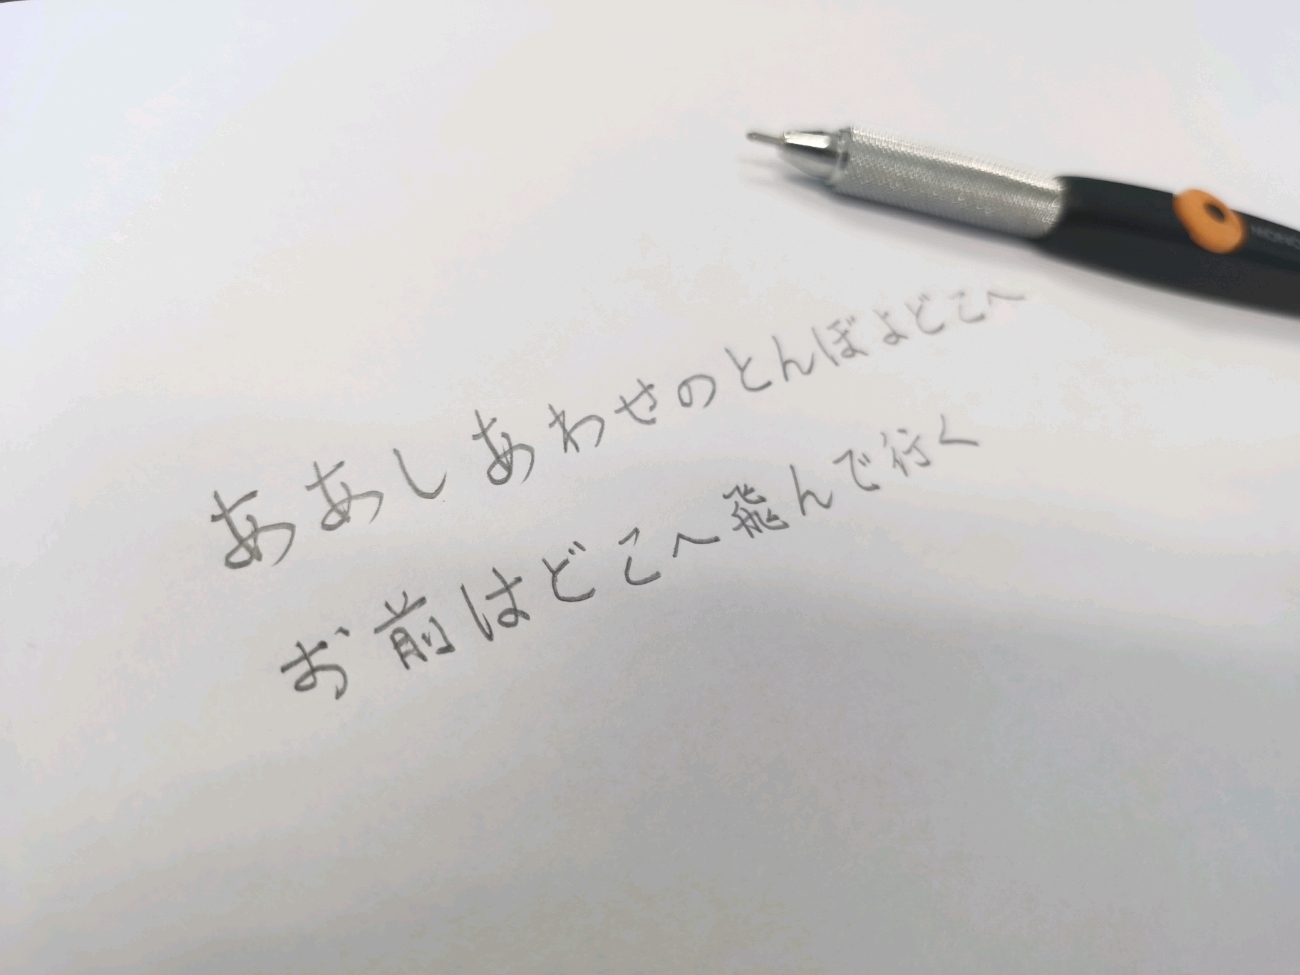 ああしあわせのとんぼよどこへ
お前はどこへ飛んで行く
MONO